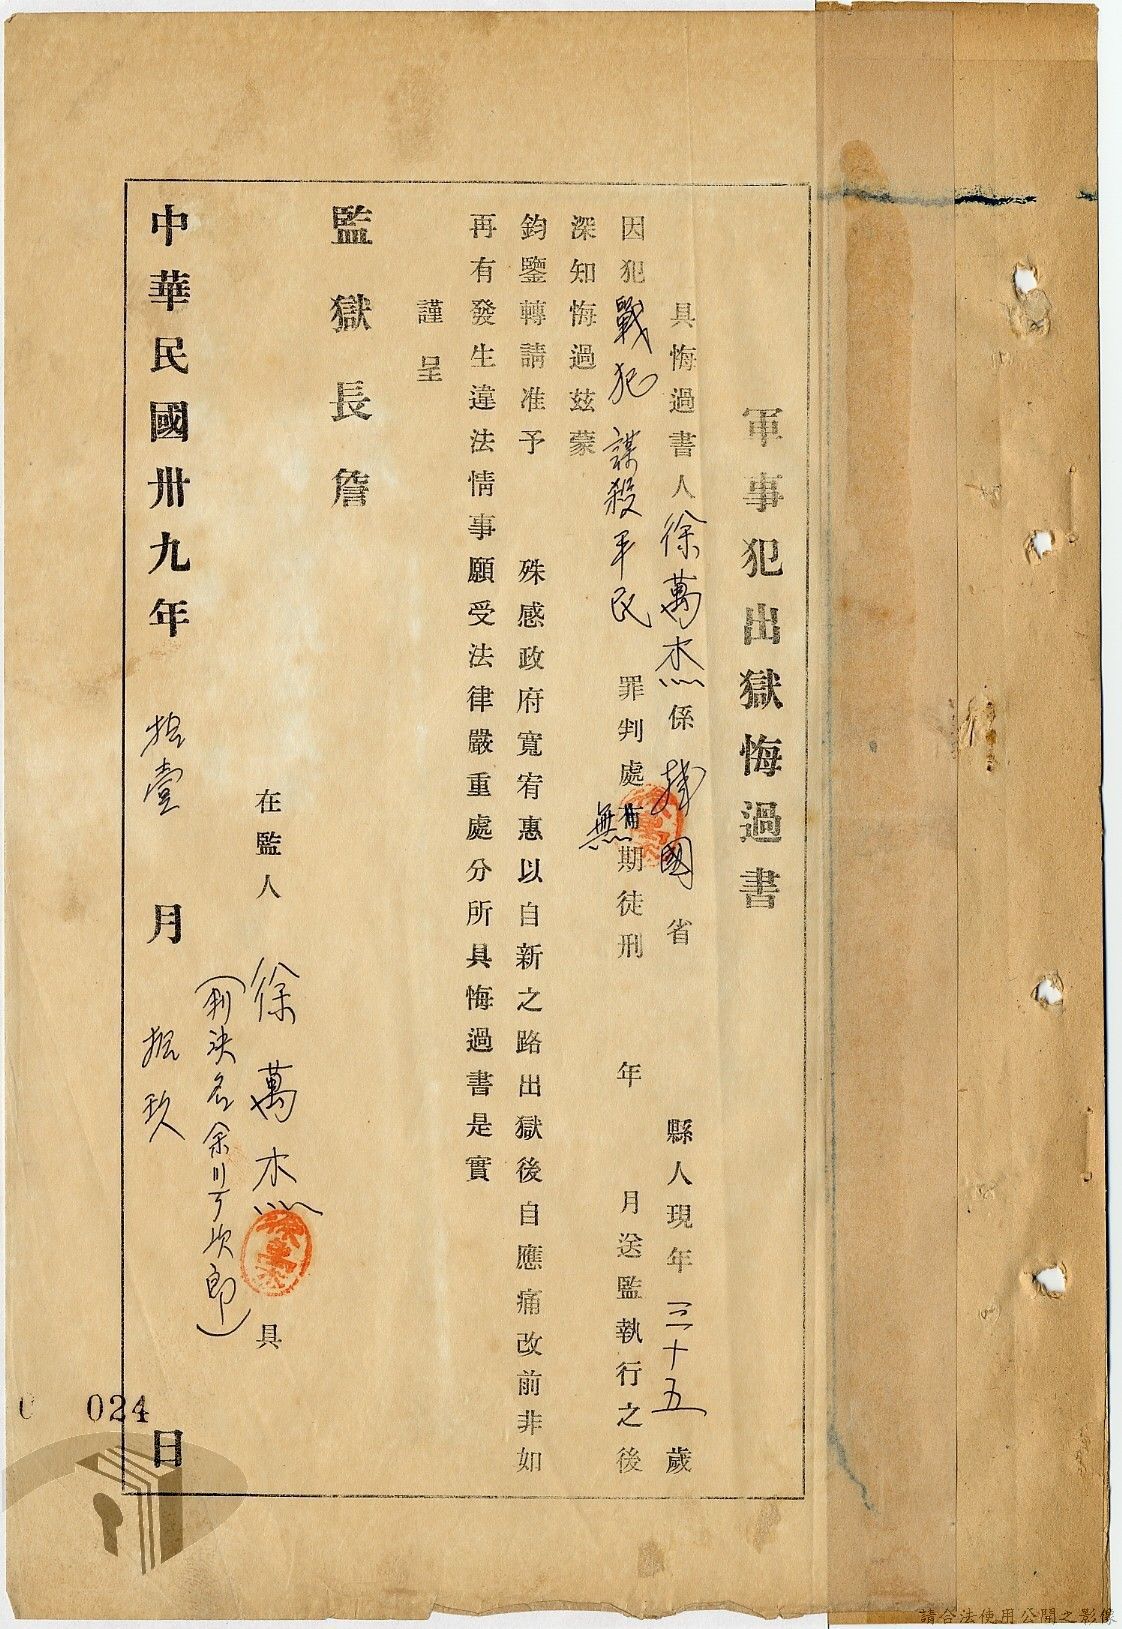 軍事犯出獄悔過書
具悔過書人徐萬杰係韓國省 縣人現年三十五歲
因犯戰犯 謀殺平民 罪判處無期徒刑 年 月送監執行之後
深知悔過茲蒙
鈞鑒轉請准予 殊感政府寬宥惠以自新之路出獄後自應痛改前非如
再有發生違法情事願受法律嚴重處分所具悔過書是實
謹呈
監獄長詹
在監人 徐萬杰 具
徐萬杰
(判決名余川丁次郎)
中華民國卅九年 拾壹 月 拾玖 日
024
請合法使用公開之影像